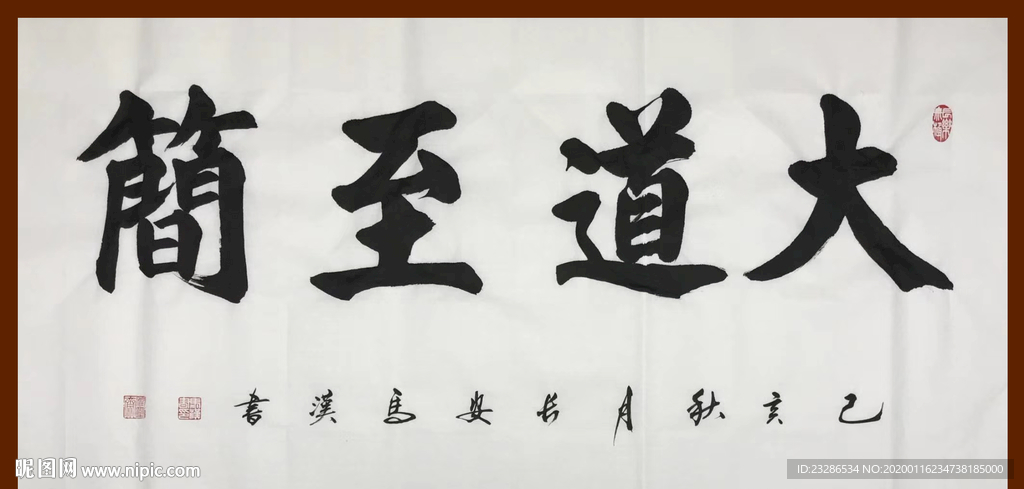 大道至簡
己亥秋月长安馬漢書
昵图网 www.nipic.com
ID:23286534 NO:20200116234738185000